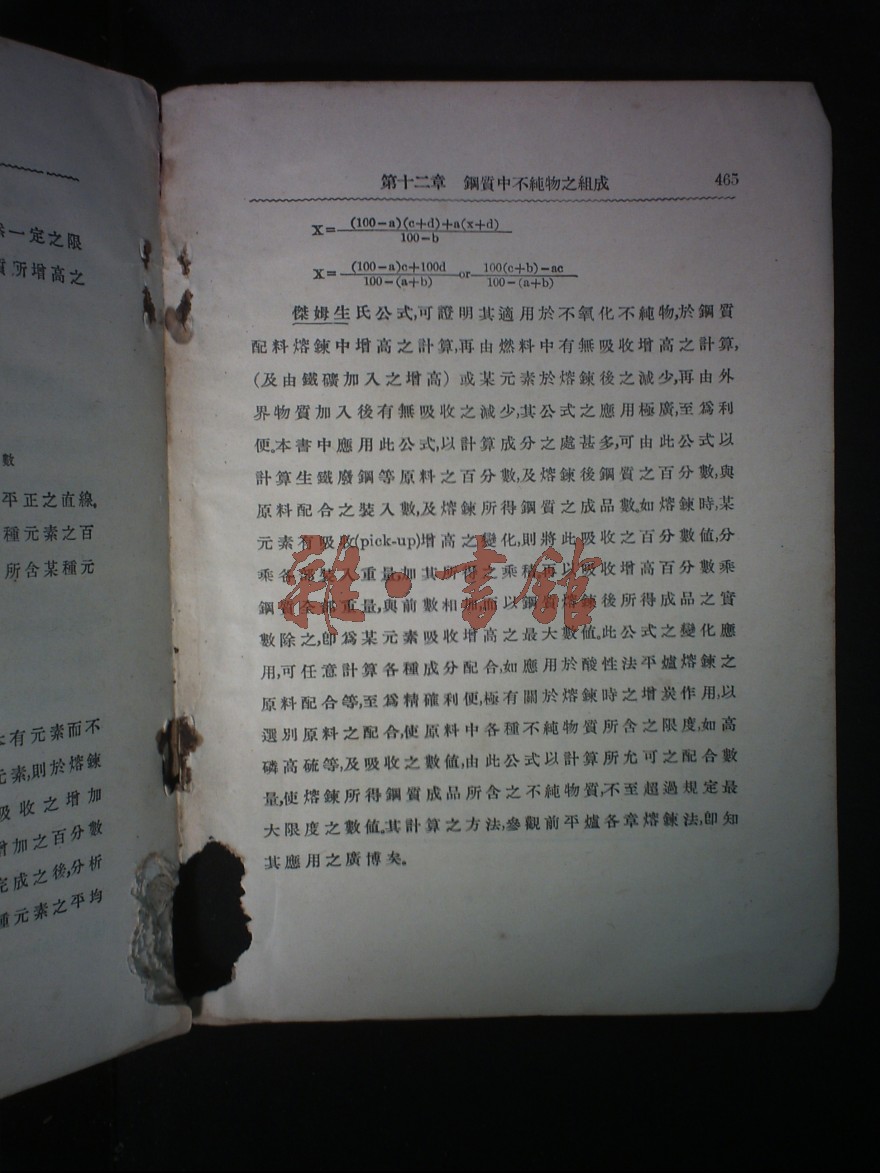 一定之限
所增高之
數
平正之直線。
種元素之百
所含某種元
有元素而不
元素,則於熔鍊
吸收之增加
增加之百分數
完成之後,分析
種元素之平均
第十二章 鋼質中不純物之組成 465
X=(100-a)(c+d)+a(x+d)/100-b
X=(100-a)c+100d/100-(a+b) or 100(c+b)-ac/100-(a+b)
傑姆生氏公式,可證明其適用於不氧化不純物,於鋼質
配料熔鍊中增高之計算,再由燃料中有無吸收增高之計算,
(及由鐵礦加入之增高)或某元素於熔鍊後之減少,再由外
界物質加入後有無吸收之減少,其公式之應用極廣,至爲利
便。本書中應用此公式,以計算成分之處甚多,可由此公式以
計算生鐵廢鋼等原料之百分數,及熔鍊後鋼質之百分數,與
原料配合之裝入數,及熔鍊所得鋼質之成品數。如熔鍊時,某
元素有吸收(pick-up)增高之變化,則將此吸收之百分數值,分
乘各部裝入重量,加其所得之乘積,再以吸收增高百分數乘
鋼質全部重量,與前數相加,而以鋼質熔鍊後所得成品之實
數除之,卽爲某元素吸收增高之最大數值。此公式之變化應
用,可任意計算各種成分配合,如應用於酸性法平爐熔鍊之
原料配合等,至爲精確利便,極有關於熔鍊時之增炭作用,以
選別原料之配合,使原料中各種不純物質所含之限度,如高
磷高硫等,及吸收之數值,由此公式以計算所允可之配合數
量,使熔鍊所得鋼質成品所含之不純物質,不至超過規定最
大限度之數值。其計算之方法,參觀前平爐各章熔鍊法,卽知
其應用之廣博矣。
雜·書館